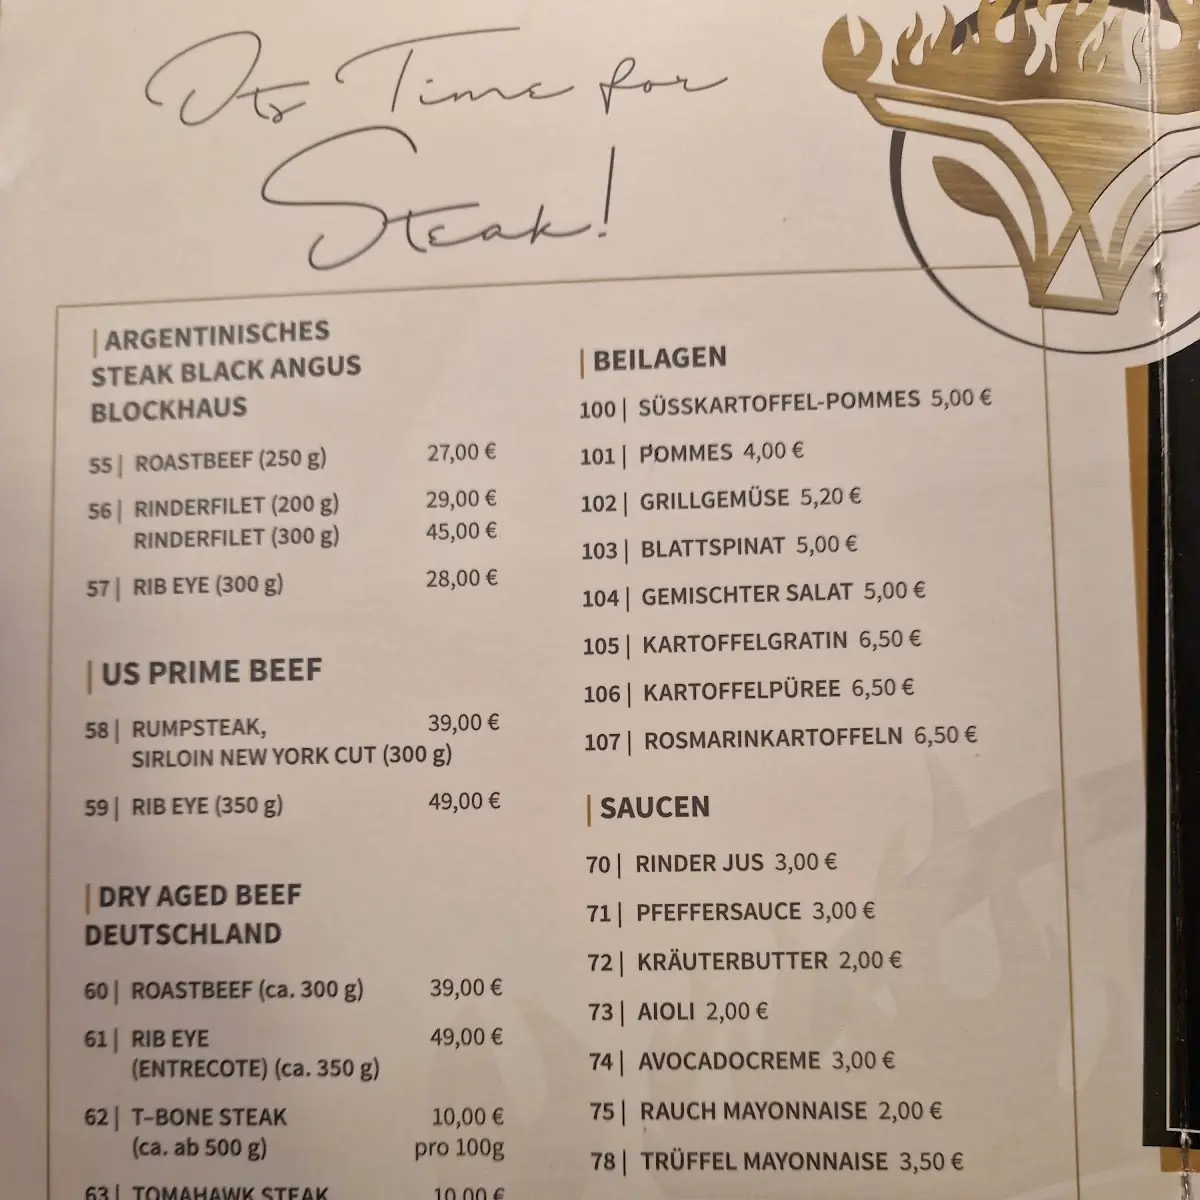 Its Time for
Steak!
ARGENTINISCHES
STEAK BLACK ANGUS
BLOCKHAUS
55| ROASTBEEF (250 g) 27,00 €
56| RINDERFILET (200 g) 29,00 €
RINDERFILET (300 g) 45,00 €
57| RIB EYE (300 g) 28,00 €
US PRIME BEEF
58| RUMPSTEAK, 39,00 €
SIRLOIN NEW YORK CUT (300 g)
59| RIB EYE (350 g) 49,00 €
DRY AGED BEEF
DEUTSCHLAND
60| ROASTBEEF (ca. 300 g) 39,00 €
61| RIB EYE 49,00 €
(ENTRECOTE) (ca. 350 g)
62| T-BONE STEAK 10,00 €
(ca. ab 500 g) pro 100g
63| TOMAHAWK STEAK 10,00 €
BEILAGEN
100| SÜSSKARTOFFEL-POMMES 5,00 €
101| POMMES 4,00 €
102| GRILLGEMÜSE 5,20 €
103| BLATTSPINAT 5,00 €
104| GEMISCHTER SALAT 5,00 €
105| KARTOFFELGRATIN 6,50 €
106| KARTOFFELPÜREE 6,50 €
107| ROSMARINKARTOFFELN 6,50 €
SAUCEN
70| RINDER JUS 3,00 €
71| PFEFFERSAUCE 3,00 €
72| KRÄUTERBUTTER 2,00 €
73| AIOLI 2,00 €
74| AVOCADOCREME 3,00 €
75| RAUCH MAYONNAISE 2,00 €
78| TRÜFFEL MAYONNAISE 3,50 €